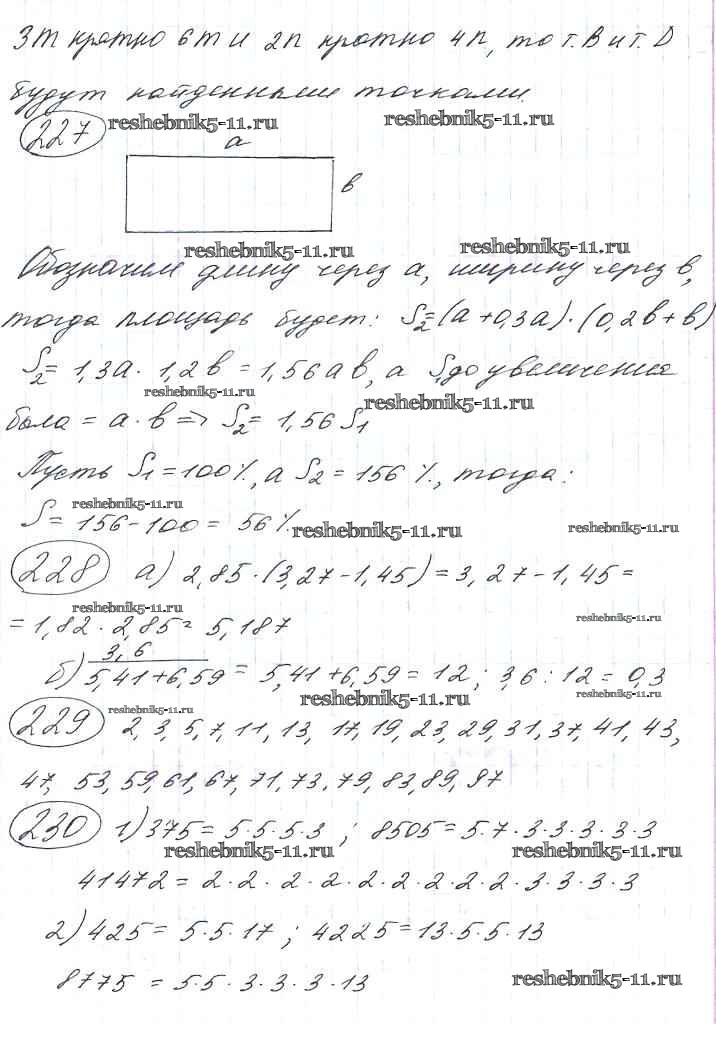 3m кратно 6m и 2n кратно 4n, то т. B и т. D
будут найденными точками.
227 reshebnik5-11.ru reshebnik5-11.ru
a
в
reshebnik5-11.ru reshebnik5-11.ru
Обозначим длину через a, ширину через в,
тогда площадь будет: S₂=(a+0,3a)·(0,2в+в)
S₂= 1,3a · 1,2в = 1,56aв, а S₁ до увеличения
reshebnik5-11.ru reshebnik5-11.ru
была = a·в ⇒ S₂= 1,56 S₁
Пусть S₁=100%, а S₂=156%, тогда:
reshebnik5-11.ru
S= 156-100= 56% reshebnik5-11.ru reshebnik5-11.ru
228 а) 2,85·(3,27-1,45)=3,27-1,45=
reshebnik5-11.ru reshebnik5-11.ru
=1,82·2,85=5,187
б) 3,6
5,41+6,59 = 5,41+6,59=12; 3,6:12=0,3
reshebnik5-11.ru reshebnik5-11.ru
229 reshebnik5-11.ru 2,3,5,7,11,13, 17,19,23,29,31,37,41,43,
47, 53,59,61,67,71,73,79,83,89,97
230 1)375=5·5·5·3; 8505=5·7·3·3·3·3·3
reshebnik5-11.ru reshebnik5-11.ru
41472=2·2·2·2·2·2·2·2·2·3·3·3·3
2)425= 5·5·17; 4225=13·5·5·13
8775 =5·5·3·3·3·13 reshebnik5-11.ru